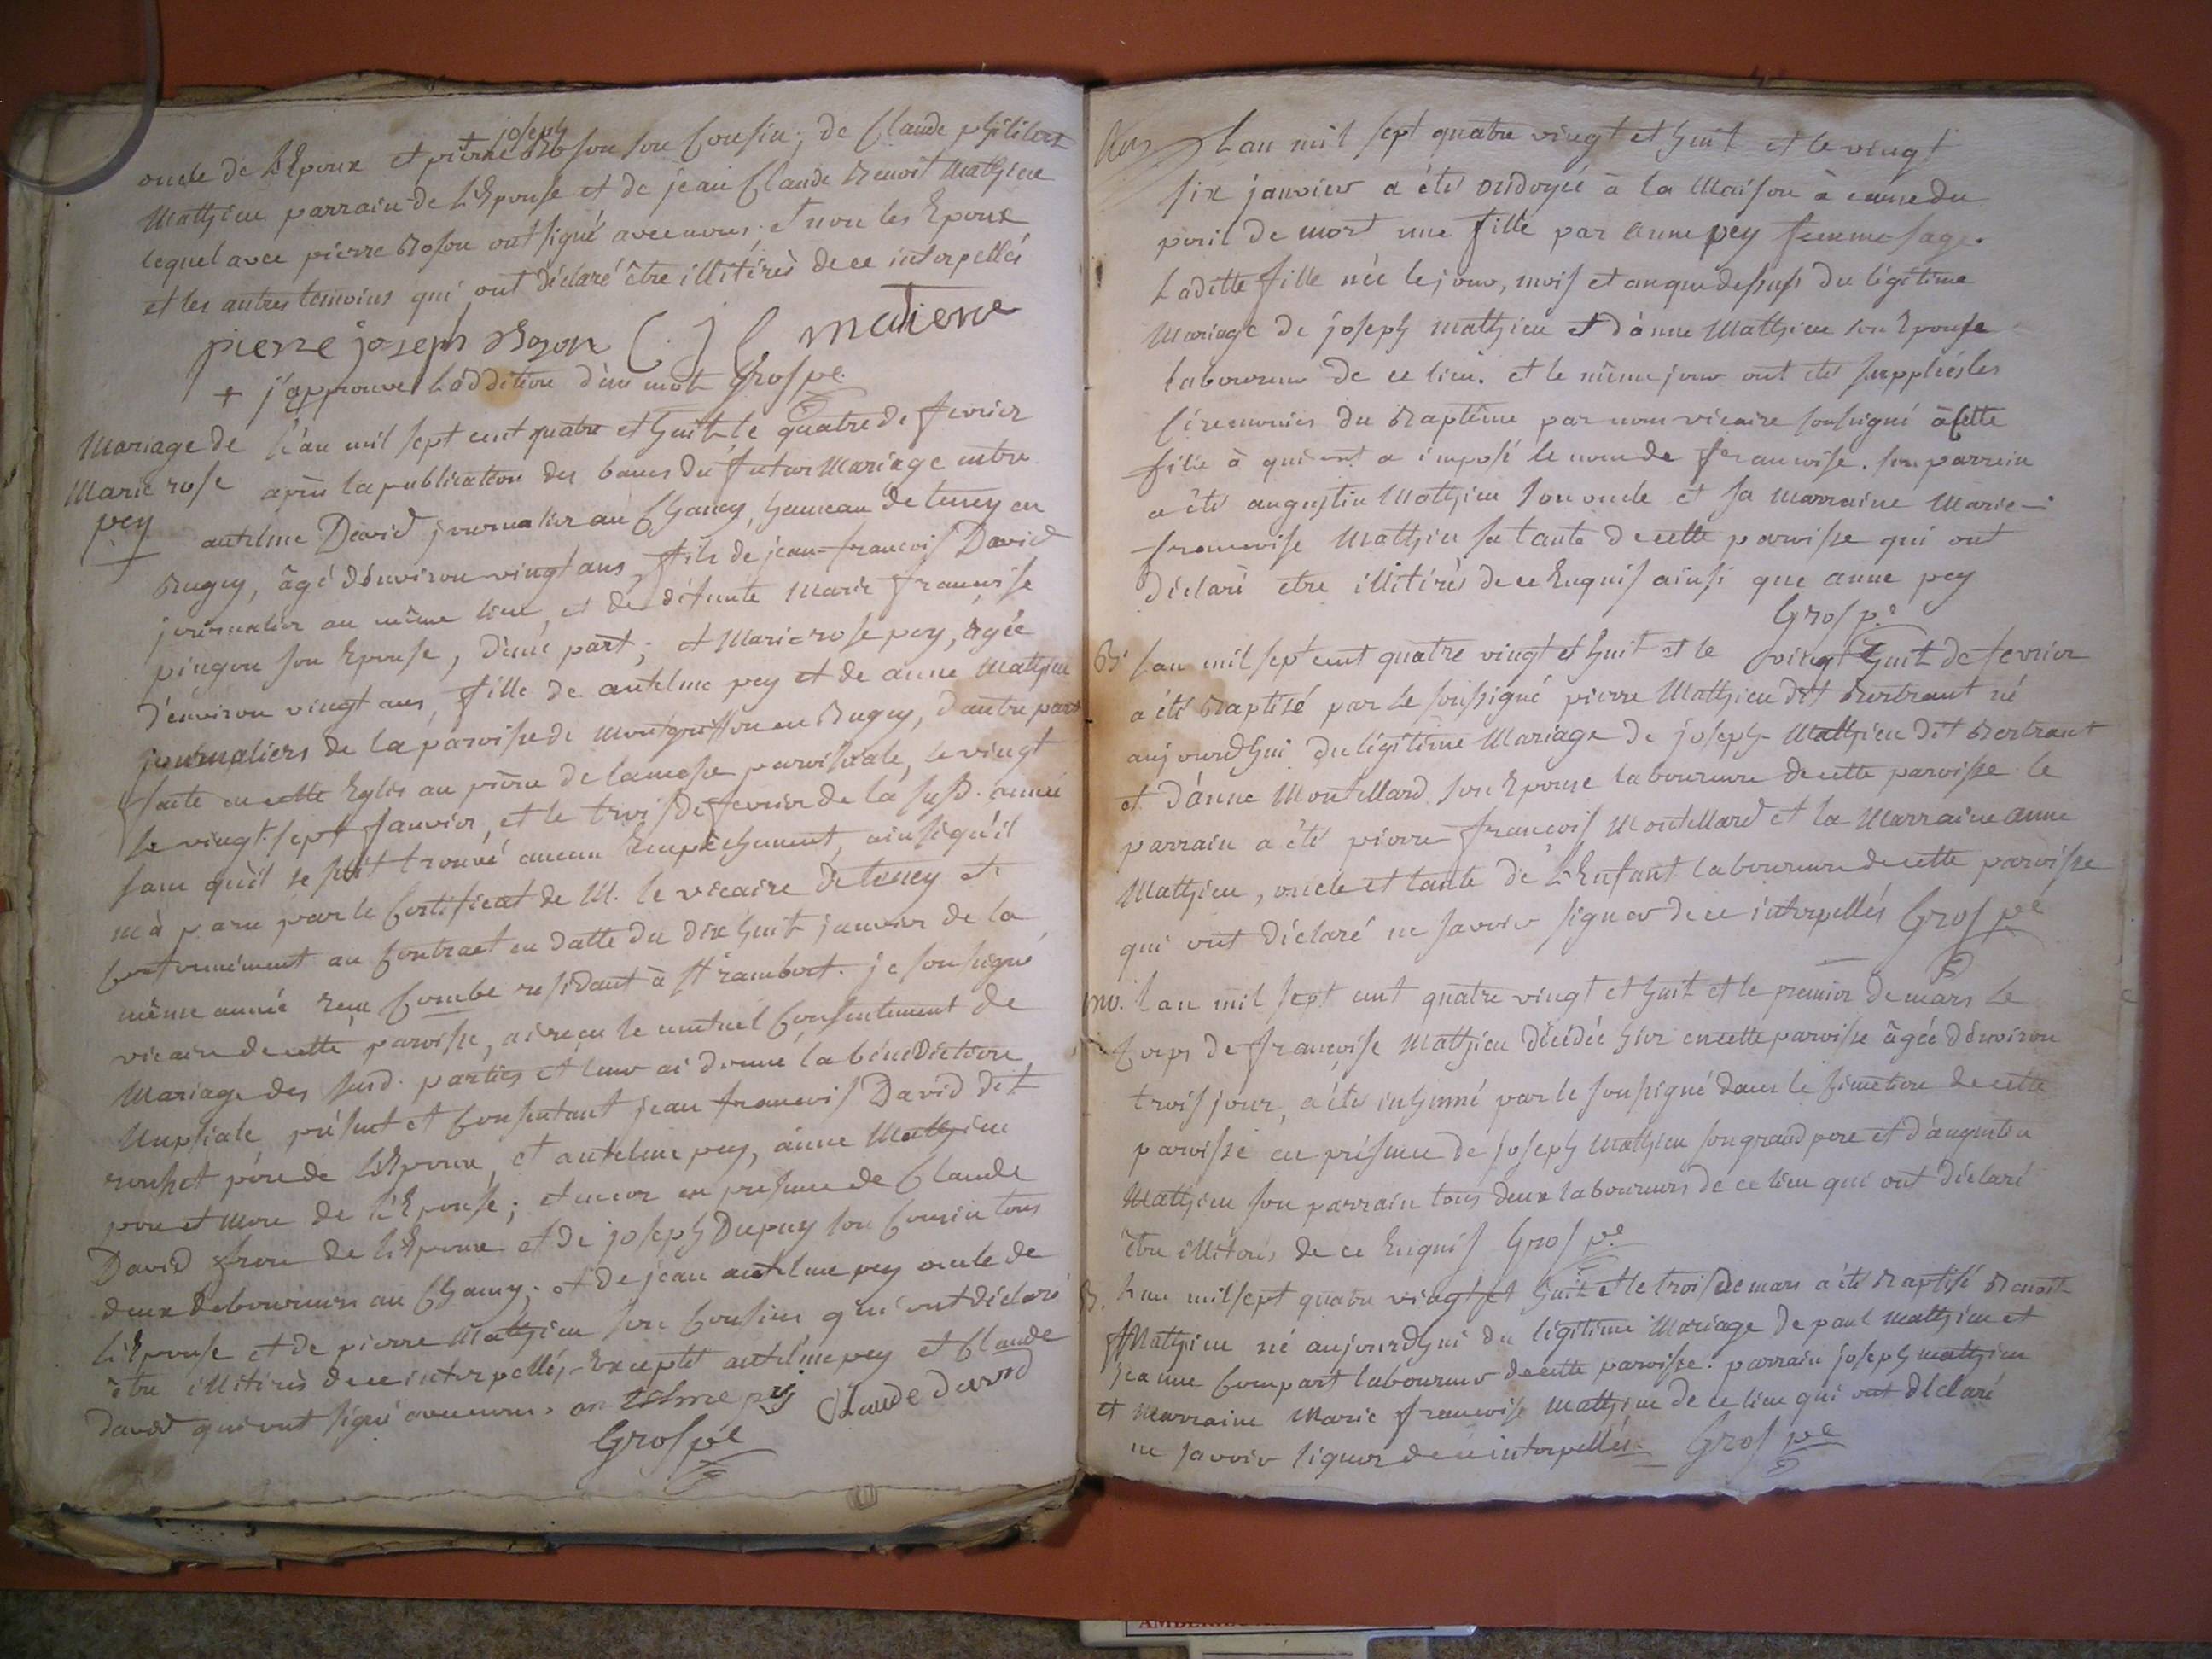 oncle de L'Epoux et pierre + joseph Bozon son Cousin; de Claude philibert
Mathieu parrain de L'Epouse et de jean Claude Benoit Mathieu
lequel avec pierre Bozon ont signé avec nous. et non les Epoux
et les autres temoins qui ont déclaré être illitérés de ce interpellés
pierre joseph Bozon C. j C matieue
+ j'approuve L'addition d'un mot Gros pe.
Mariage de L'an mil sept cent quatre et huit le quatre de fevrier
Marie rose après la publication des bancs du futur Mariage entre
pey antelme David journalier au Chaney, hameau de teney en
Bugey, âgé d'environ vingt ans, fils de jean-francois David
journalier au même lieu, et de défunte Marie francoise
pingon son Epouse, d'une part; et Marie rose pey, âgée
d'environ vingt ans, fille de antelme pey et de anne Mathieu
journaliers de la paroisse de Montgriffon en Bugey, d'autre part
faite en cette Eglise au prône de la messe paroissiale, le vingt
le vingt-sept janvier, et le trois de fevrier de la susd. année
sans qu'il se soit trouvé aucun Empêchement, ainsi qu'il
m'à paru par le Certificat de M. le vicaire de teney et
Conformément au Contract en datte du dix huit janvier de la
même année reçu Combe residant à St rambert. je soussigné
vicaire de cette paroisse, ai reçu le mutuel Consentement de
Mariage des susd. parties et leur ai donné la bénédiction
Nuptiale, présent et Consentant jean francois David dit
rousset père de L'Epoux, et antelme pey, anne Mathieu
pere et Mere de L'Epouse; et encor en presence de Claude
David frere de L'Epoux et de joseph Dupuy son Cousin tous
deux Laboureurs au Chaney; et de jean antelme pey oncle de
L'Epouse et de pierre Mathieu son Cousin qui ont déclaré
être illitérés de ce interpellés, Excepté antelme pey et Claude
David qui ont signé avec nous. an telme pey Claude david
Gros pe
L'an mil sept quatre vingt et huit et le vingt
six janvier a été ondoyée à la Maison à cause du
peril de mort une fille par anne pey femme sage.
Laditte fille née le jour, mois et an que dessus du légitime
Mariage de joseph mathieu et d'anne Mathieu son Epouse
laboureur de ce lieu. et le même jour ont été suppléés les
Céremonies du Baptême par nous vicaire soussigné à Cette
fille à qui ont a imposé le nom de francoise. son parrein
a été augustin Mathieu son oncle et sa Marraine Marie-
francoise Mathieu sa tante de cette paroisse qui ont
déclaré etre illitérés de ce Enquis ainsi que anne pey
Gros pe
B. L'an mil sept cent quatre vingt et huit et le vingt huit de fevrier
a été Baptisé par Le soussigné pierre Mathieu dit Bertrant né
aujourd'hui du légitime Mariage de joseph Mathieu dit Bertrant
et d'anne Montillard son Epouse laboureurs de cette paroisse le
parrain a été pierre-francois Montillard et la Marraine anne
Mathieu, oncle et tante de L'Enfant laboureurs de cette paroisse
qui ont déclaré ne savoir signer de ce interpellés Gros pe
mo. L'an mil sept cent quatre vingt et huit et le premier de mars le
Corps de francoise Mathieu décédée hier en cette paroisse âgée d'environ
trois jour, a été inhumé par le soussigné dans le Cimetiere de cette
paroisse en présence de joseph Mathieu son grand pere et d'augustin
Mathieu son parrain tous deux laboureurs de ce lieu qui ont déclaré
être illitérés de ce Enquis Gros pe
B. L'an mil sept quatre vingt et huit et le trois de mars a été Baptisé Benoit
Mathieu né aujourd'hui du légitime Mariage de paul mathieu et
jeanne Compart laboureur de cette paroisse. parrain joseph mathieu
et Marraine Marie francoise Mathieu de ce lieu qui ont déclaré
ne savoir signer de ce interpellés. Gros pe